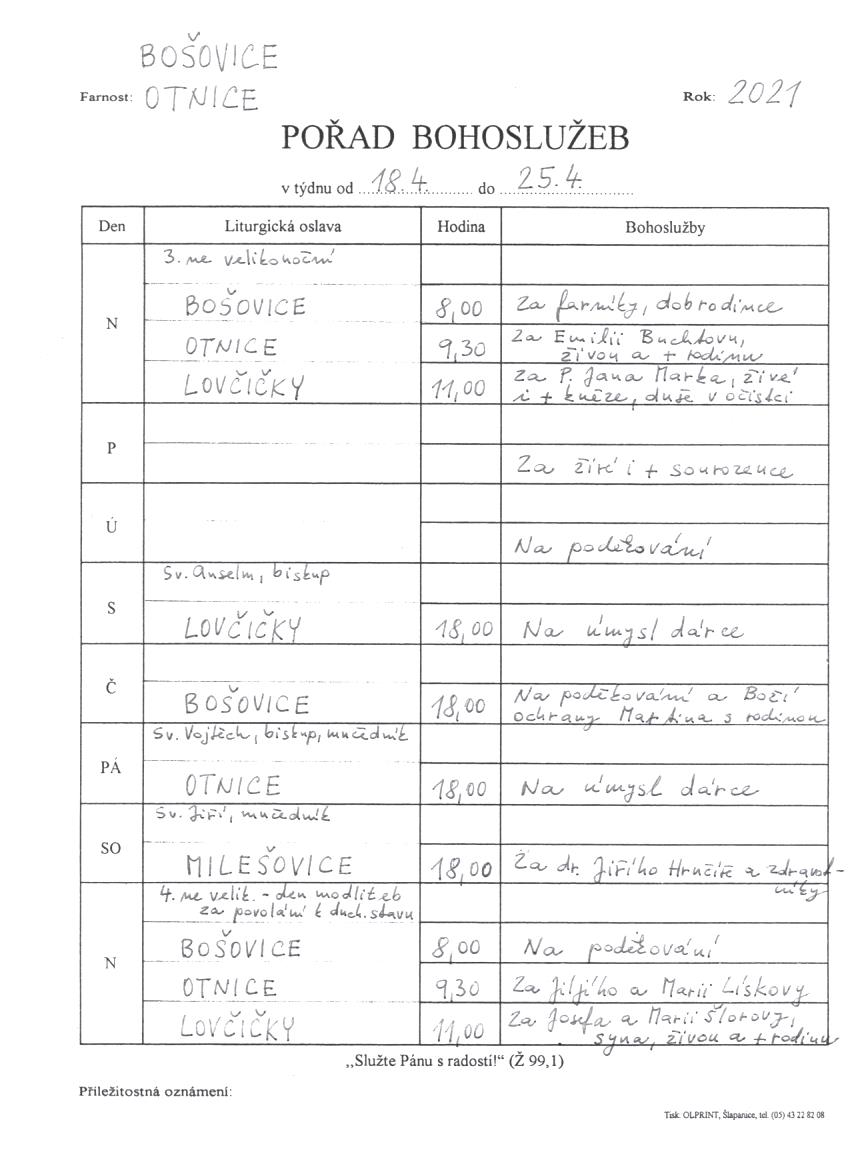 BOŠOVICE
Farnost: OTNICE
Rok: 2021
POŘAD BOHOSLUŽEB
v týdnu od 18.4. do 25.4.
Den Liturgická oslava Hodina Bohoslužby
3. ne velikonoční
BOŠOVICE 8,00 Za farníky, dobrodince
N
OTNICE 9,30 Za Emilii Buchtovu,
živou a + rodinu
LOVČIČKY 11,00 Za P. Jana Marka, živé
i + kněze, duše v očistci
P
Za živé i + sourozence
Ú
Na poděkování
Sv. Anselm, biskup
S
LOVČIČKY 18,00 Na úmysl dárce
Č
BOŠOVICE 18,00 Na poděkování a Boží
ochrany Martina s rodinou
Sv. Vojtěch, biskup, mučedník
PÁ
OTNICE 18,00 Na úmysl dárce
Sv. Jiří, mučedník
SO
MILEŠOVICE 18,00 Za dr. Jiřího a zdravot-
níky
4. ne velik. - den modliteb
za povolání k duch. stavu
BOŠOVICE 8,00 Na poděkování
N
OTNICE 9,30 Za Jiljího a Marii Lískovy
LOVČIČKY 11,00 Za Josefa a Marii Šlorovy,
syna, živou a + rodinu
„Služte Pánu s radostí!“ (Ž 99,1)
Příležitostná oznámení:
Tisk: OLPRINT, Šlapanice, tel. (05) 43 22 82 08